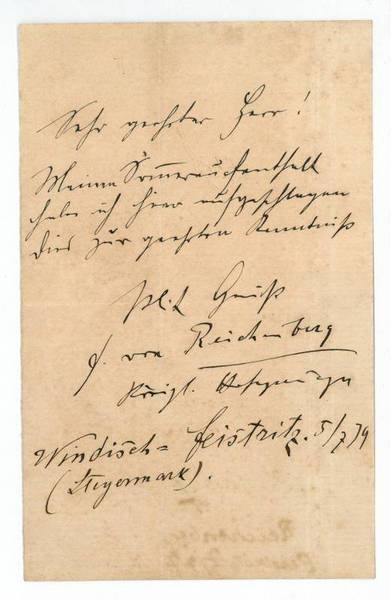 Sehr geehrter Herr!
Meinen Sommeraufenthalt
habe ich hier aufgeschlagen
dies zur geehrten Kenntniß
Gruß
F. von Reichenberg
Königl. Hofopernsänger
Windisch=Feistritz. 5/7 79
(Steyermark).